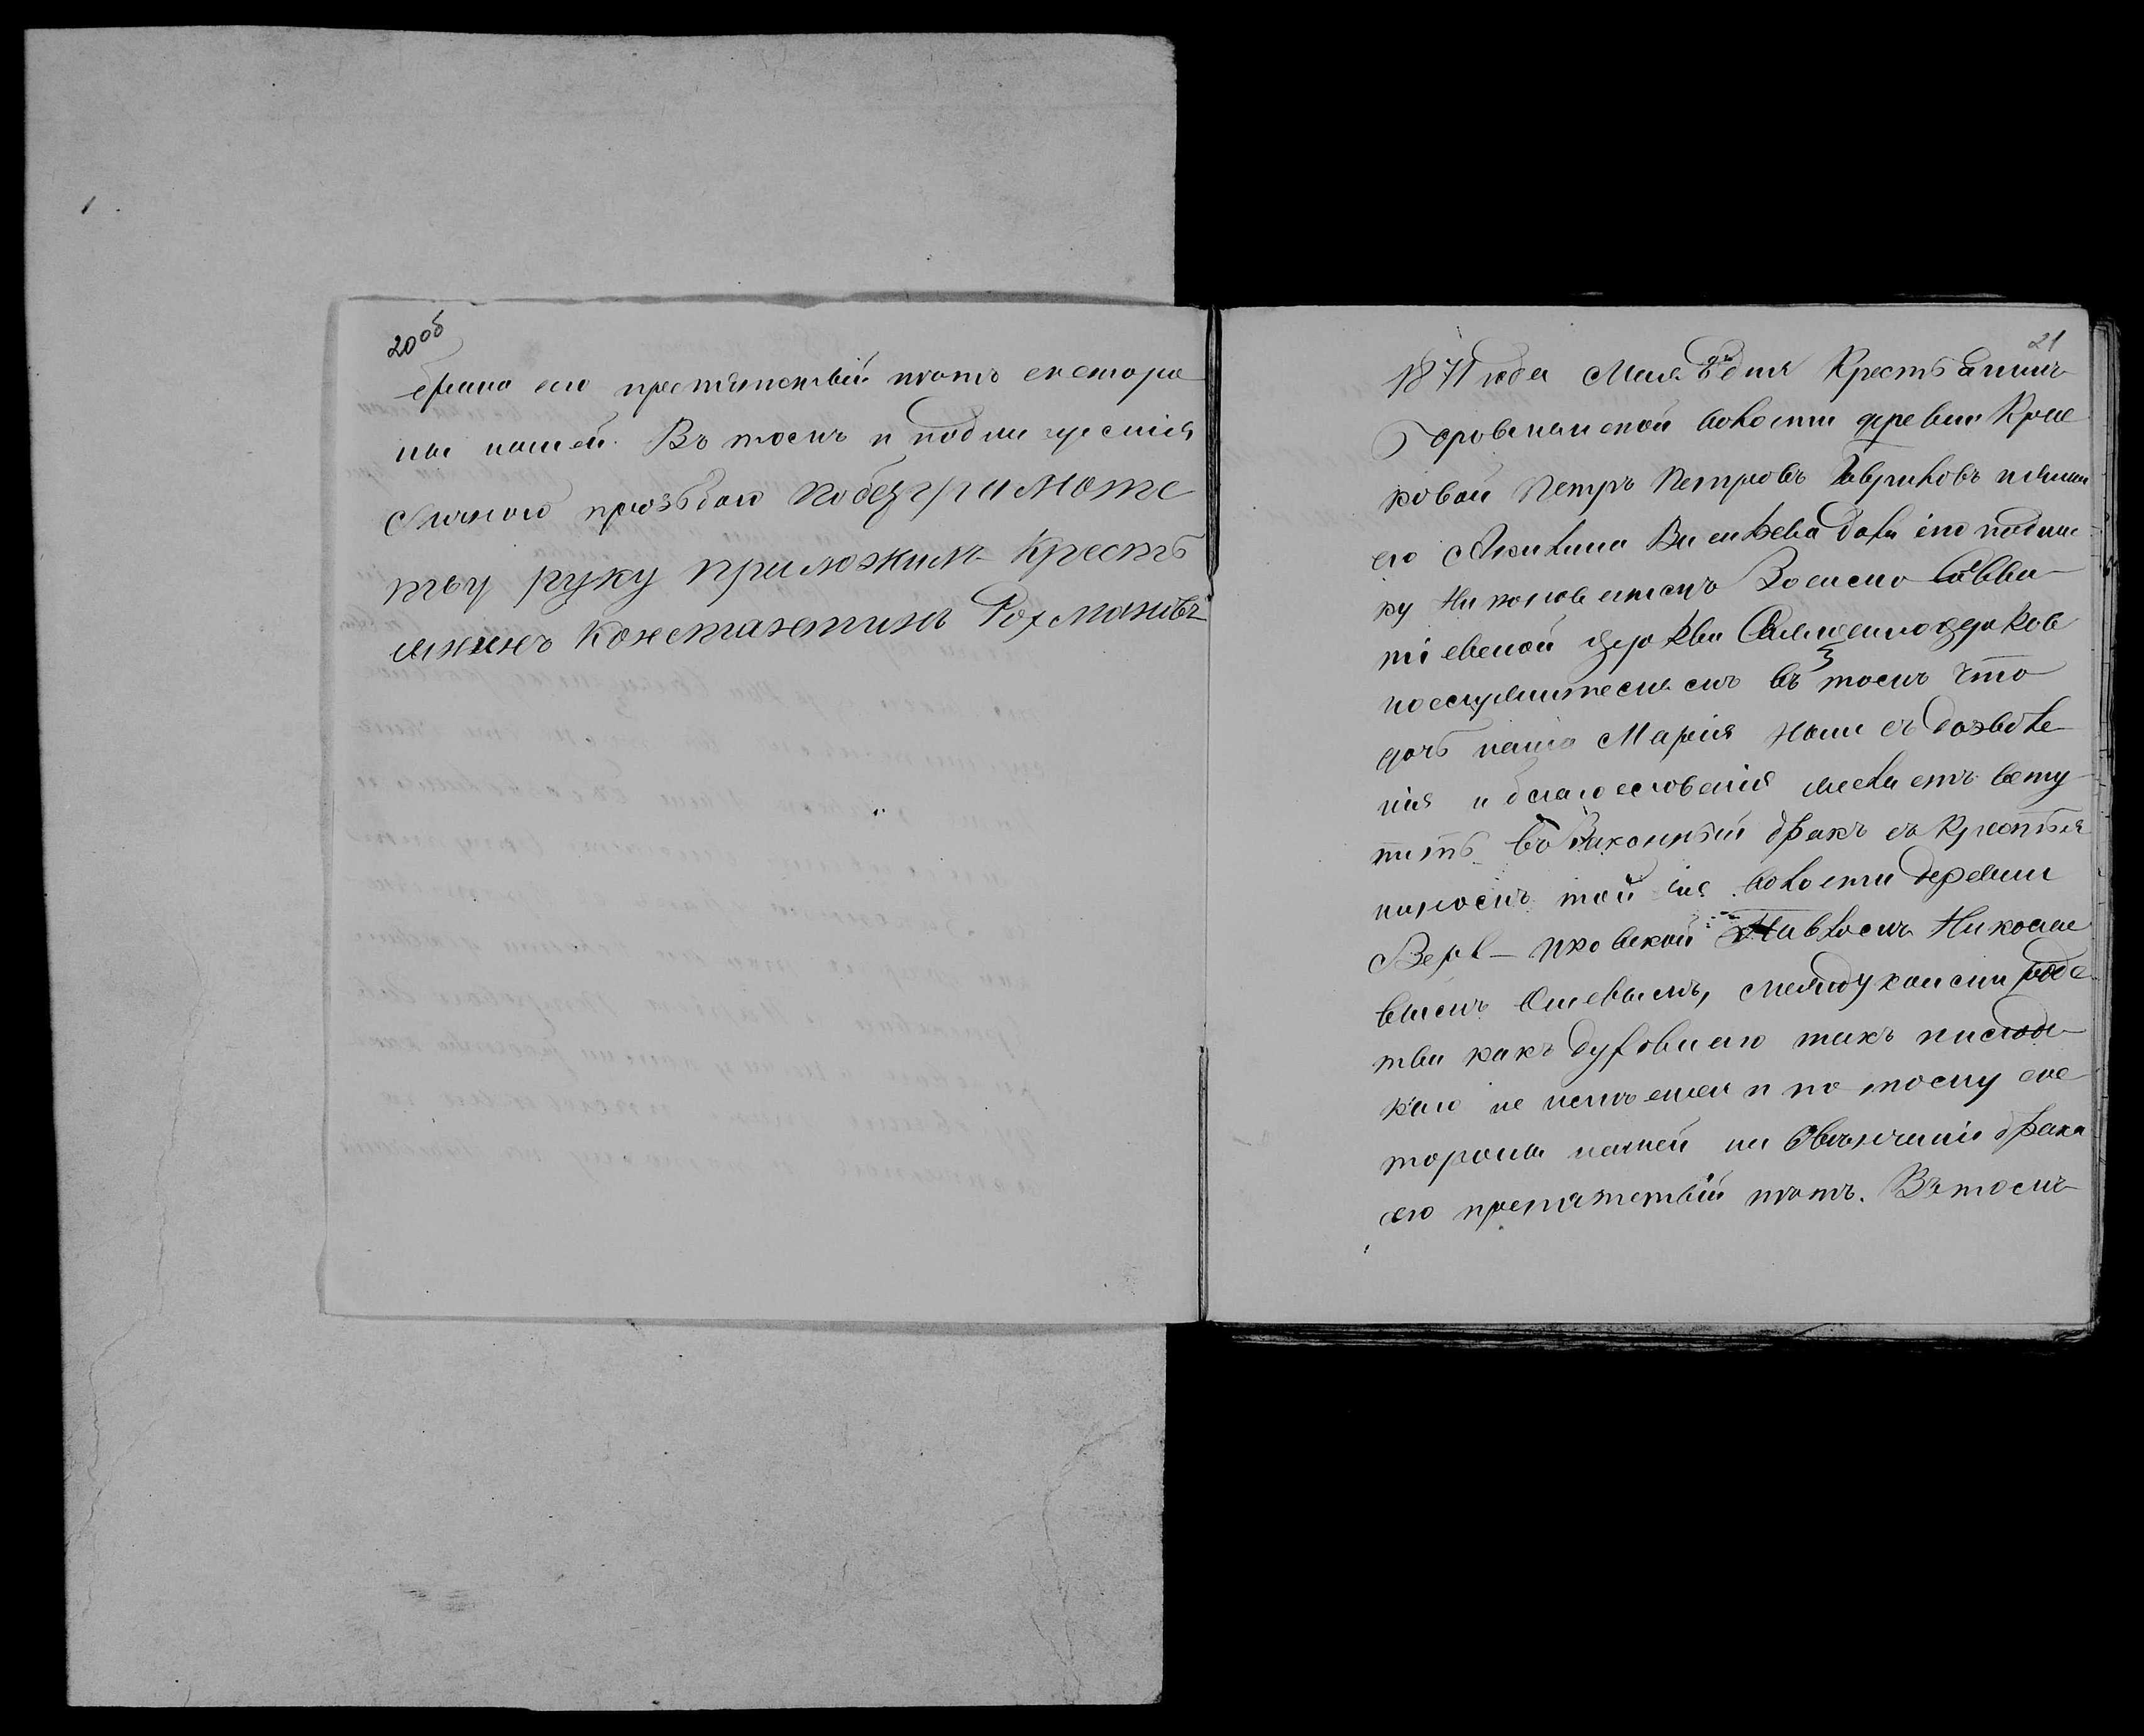 20об
брака сего препятствий нѣтъ со сторо
ны нашей. Въ томъ и подпи зуемся
Личною прозьбою по безграмоте
тву руку приложилъ Кресть
янинъ Константинъ Рохмановъ
21
1871 года Мая 8 дня Крестьянинъ
волости деревни
ковой Петръ Петровъ Гавриловъ и жена
его Акилина Васильева дали сію подпис
ку
церкви Священноцерков
нослужителямъ въ томъ что
дочь наша Марія наш съ дозволе
нія и благословенія желаетъ всту
пить въ Законный бракъ съ Крестья
ниномъ той же волости деревни
Павломъ Николае
вымъ между коими родс
тва какъ духовнаго такъ и плотс
каго не имѣемся и по тому сос
тороны нашей на Обвѣнчаніе брака
сего препятствій нѣтъ. Въ томъ